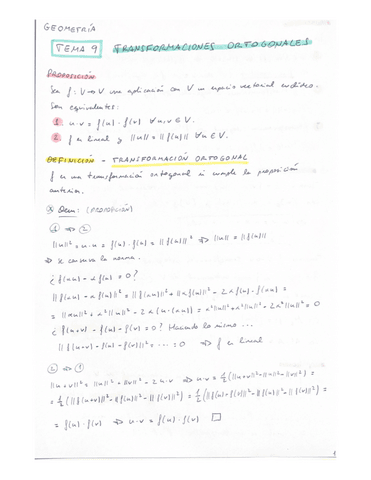 GEOMETRÍA
TEMA 9 TRANSFORMACIONES ORTOGONALES
PROPOSICIÓN
Sea f: V→V una aplicación con V un espacio vectorial euclídeo.
Son equivalentes:
1. u·v = f(u)·f(v) ∀u,v ∈ V.
2. f es lineal y ||u|| = ||f(u)|| ∀u ∈ V.
DEFINICIÓN - TRANSFORMACIÓN ORTOGONAL
f es una transformación ortogonal si cumple la proposición
anterior.
Dem: (PROPOSICIÓN)
① ⇒ ②
||u||² = u·u = f(u)·f(u) = ||f(u)||² ⇒ ||u|| = ||f(u)||
⇒ se conserva la norma.
¿f(αu) - αf(u) = 0?
||f(αu) - αf(u)||² = ||f(αu)||² + ||αf(u)||² - 2α f(αu)·f(u) =
= ||αu||² + α²||u||² - 2α(u·(αu)) = α²||u||² + α²||u||² - 2α²||u||² = 0
¿f(u+v) - f(u) - f(v) = 0? Haciendo lo mismo ...
||f(u+v) - f(u) - f(v)||² = ... = 0 ⇒ f es lineal
② ⇒ ①
||u+v||² = ||u||² + ||v||² - 2u·v ⇒ u·v = 1/2(||u+v||² - ||u||² - ||v||²) =
= 1/2(||f(u+v)||² - ||f(u)||² - ||f(v)||²) = 1/2(||f(u)+f(v)||² - ||f(u)||² - ||f(v)||²) =
= f(u)·f(v) ⇒ u·v = f(u)·f(v) □
1